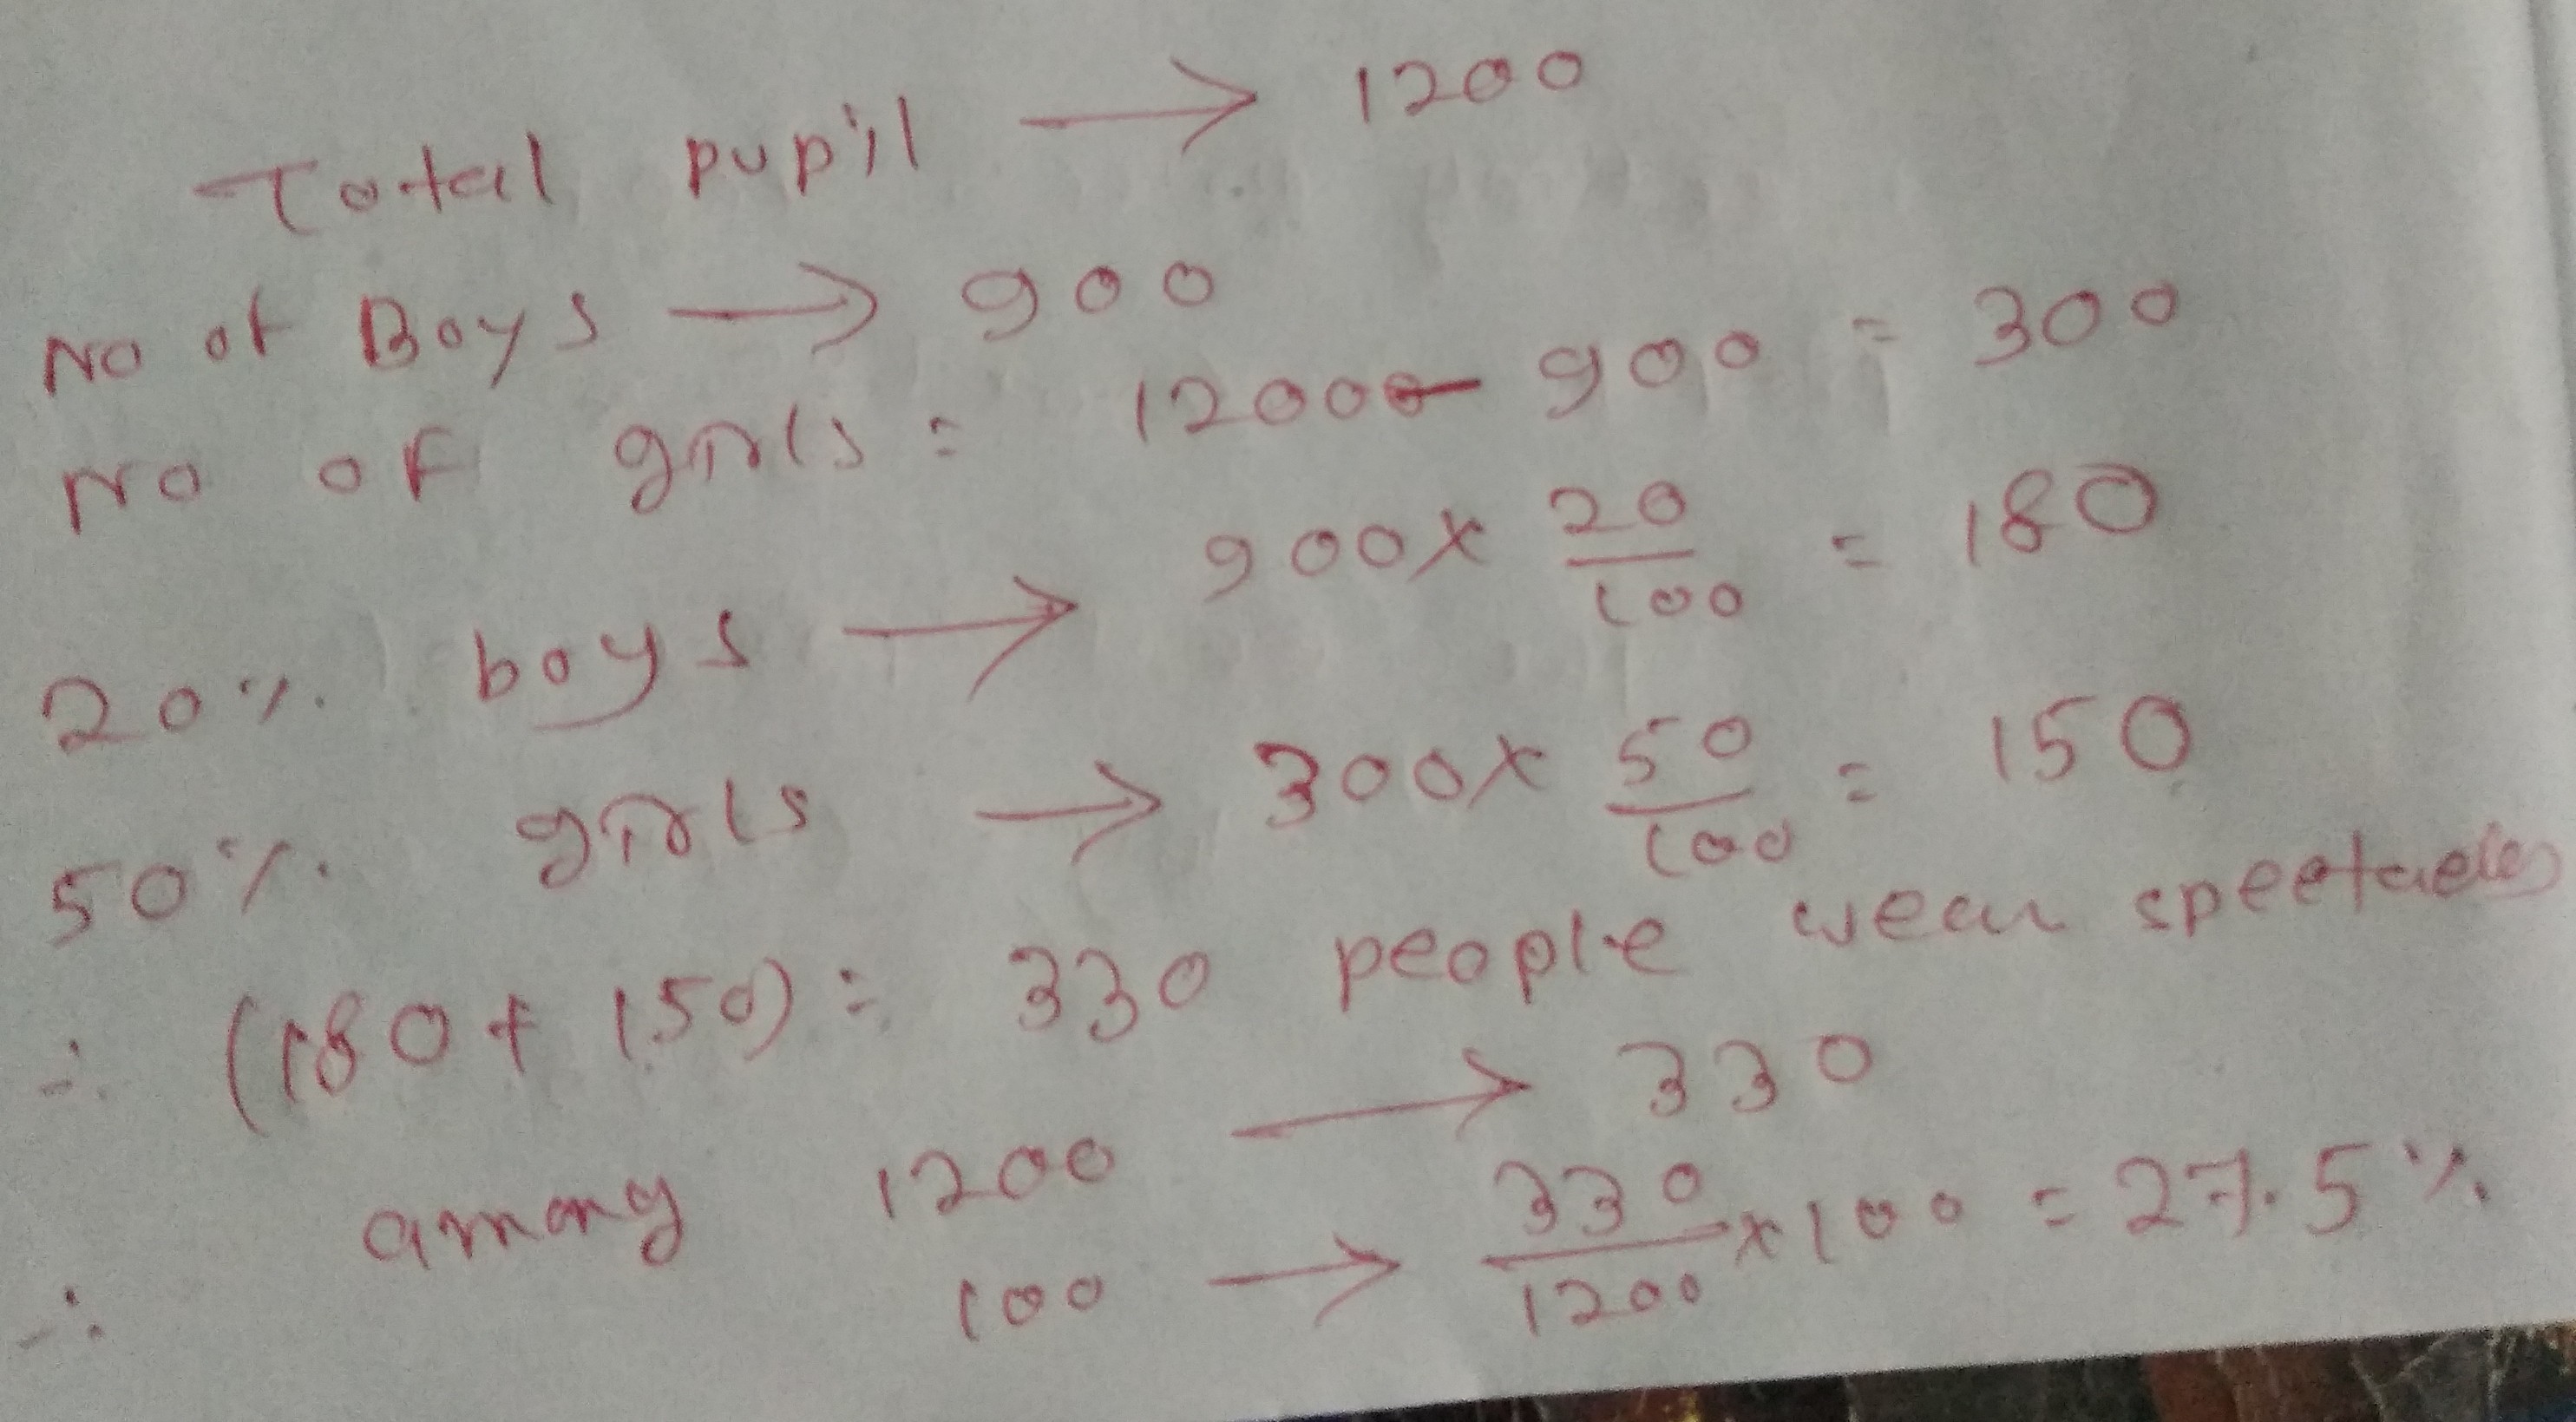 Total pupil → 1200
No of Boys → 900
No of girls = 1200 - 900 = 300
20% boys → 900 x 20/100 = 180
50% girls → 300 x 50/100 = 150
∴ (180 + 150) = 330 people wear spectacles
among 1200 → 330
∴ 100 → 330/1200 x 100 = 27.5%